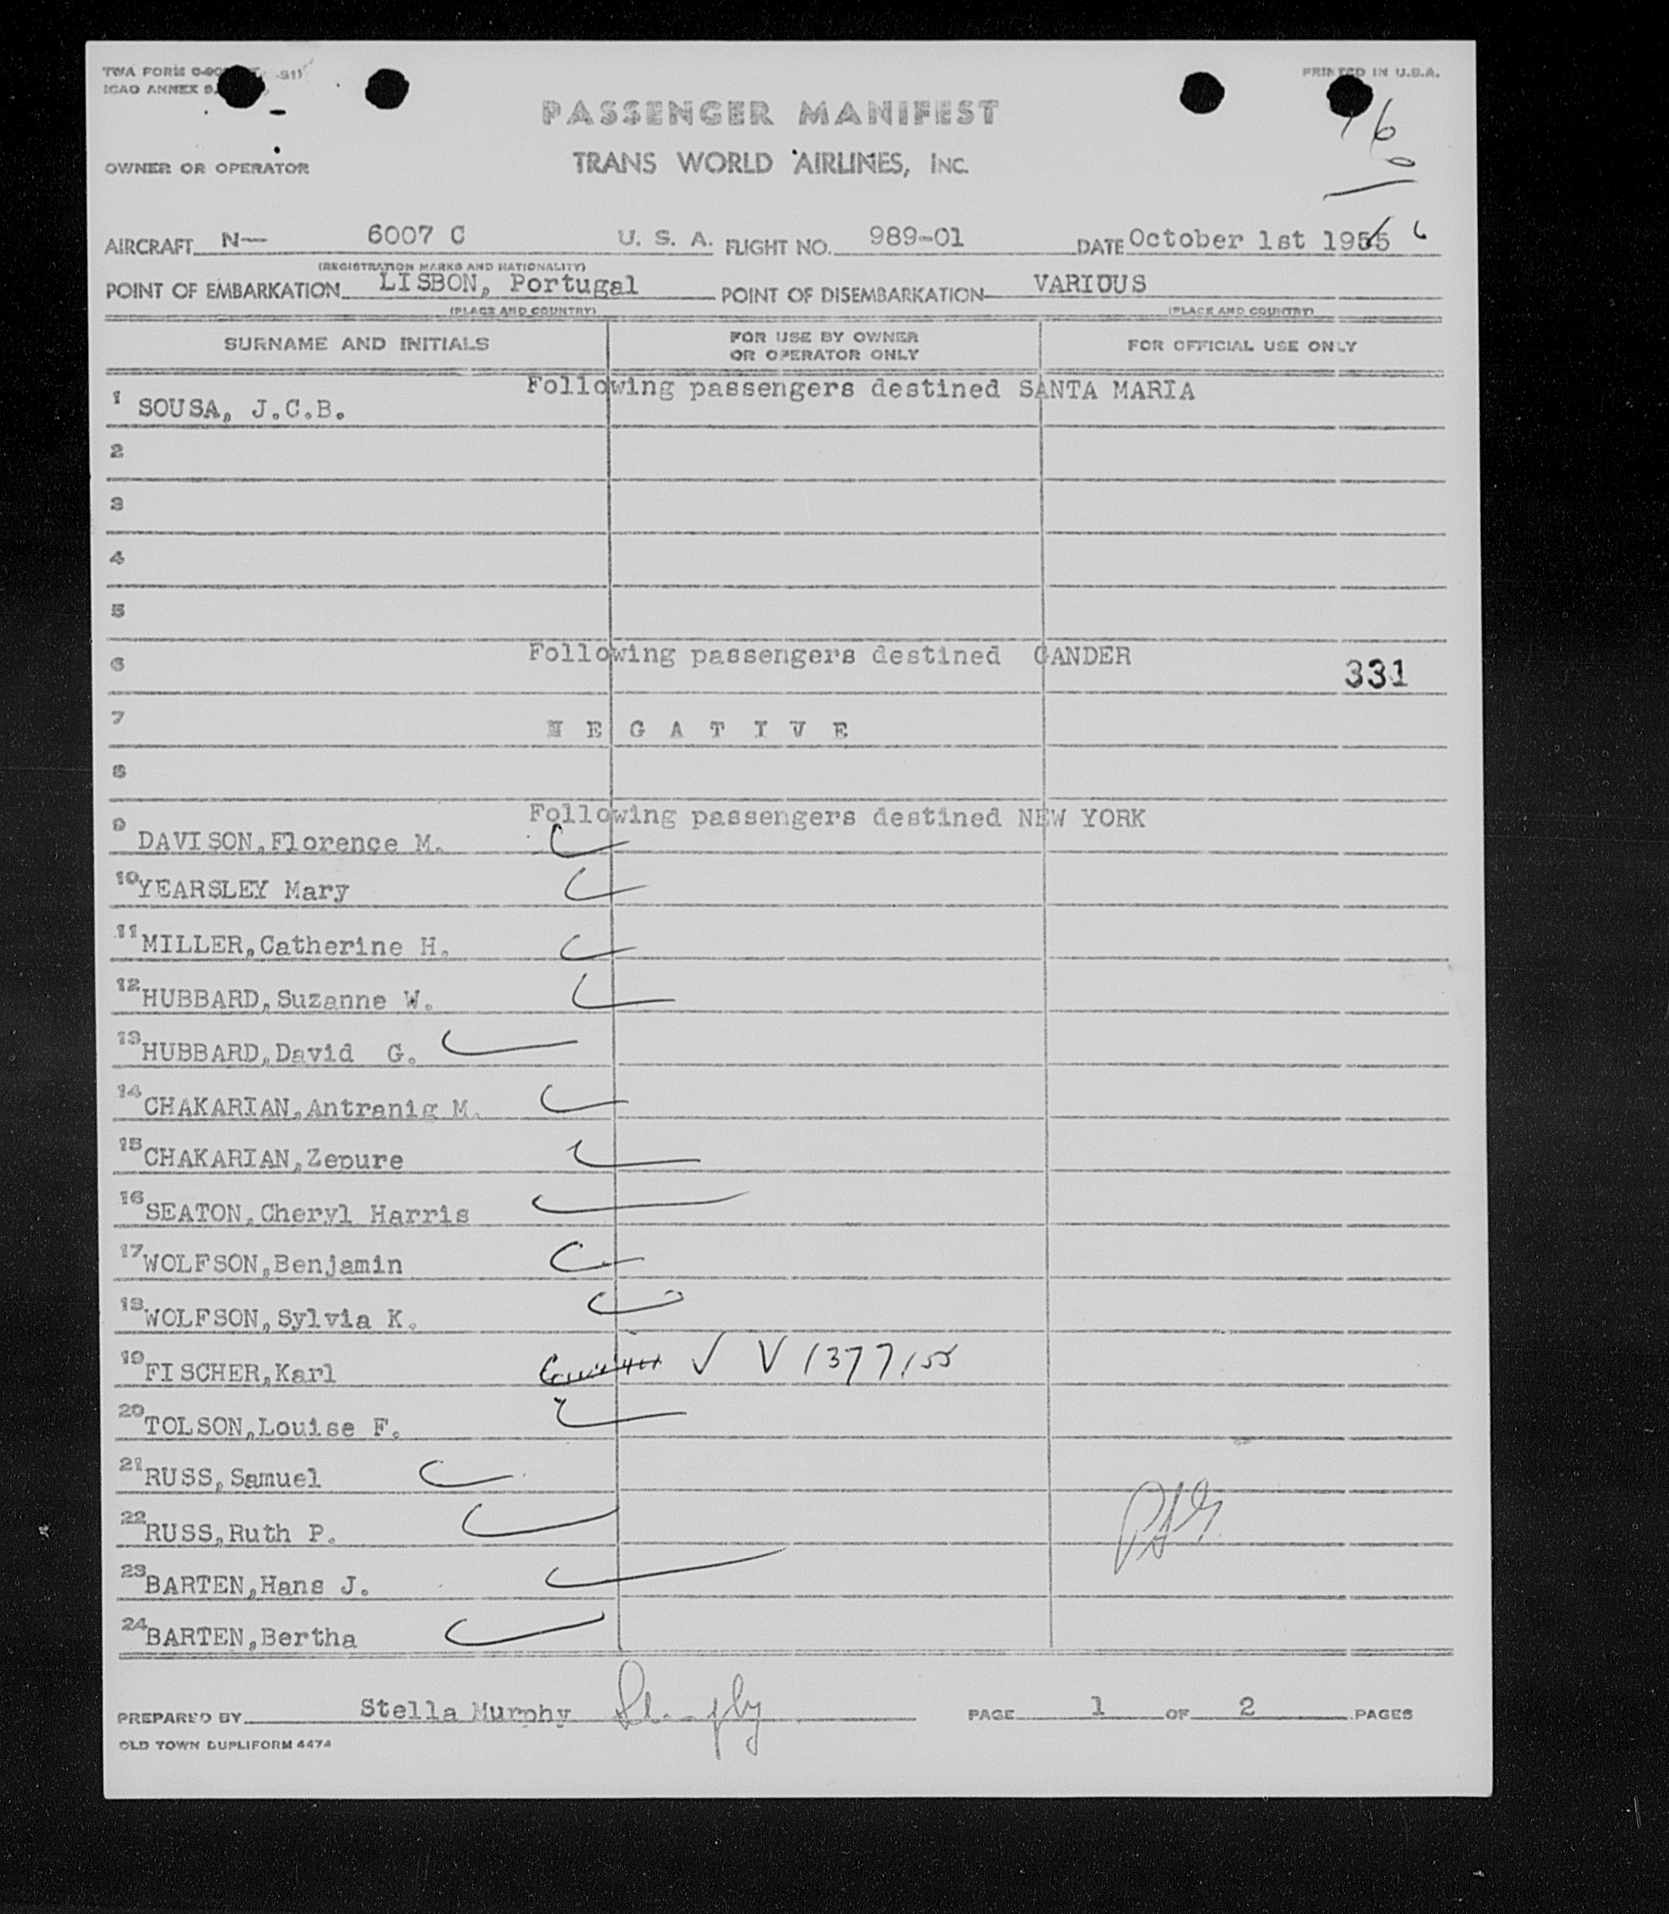 TWA FORM
PRINTED IN U.S.A.
ICAO ANNEX 9
PASSENGER MANIFEST
16
0
OWNER OR OPERATOR
TRANS WORLD AIRLINES, INC.
AIRCRAFT N— 6007 C U. S. A. FLIGHT NO. 989-01 DATE October 1st 1955 6
(REGISTRATION MARKS AND NATIONALITY)
POINT OF EMBARKATION LISBON, Portugal POINT OF DISEMBARKATION VARIOUS
(PLACE AND COUNTRY) (PLACE AND COUNTRY)
SURNAME AND INITIALS FOR USE BY OWNER OR OPERATOR ONLY FOR OFFICIAL USE ONLY
Following passengers destined SANTA MARIA
1 SOUSA, J.C.B.
2
3
4
5
Following passengers destined GANDER
6 331
7 N E G A T I V E
8
Following passengers destined NEW YORK
9 DAVISON,Florence M.
10 YEARSLEY Mary
11 MILLER,Catherine H.
12 HUBBARD,Suzanne W.
13 HUBBARD,David G.
14 CHAKARIAN,Antranig M.
15 CHAKARIAN,Zepure
16 SEATON,Cheryl Harris
17 WOLFSON,Benjamin
18 WOLFSON,Sylvia K.
19 FISCHER,Karl ✓ V 1377155
20 TOLSON,Louise F.
21 RUSS,Samuel
22 RUSS,Ruth P.
23 BARTEN,Hans J.
24 BARTEN,Bertha
PREPARED BY Stella Murphy PAGE 1 OF 2 PAGES
OLD TOWN DUPLIFORM 4474